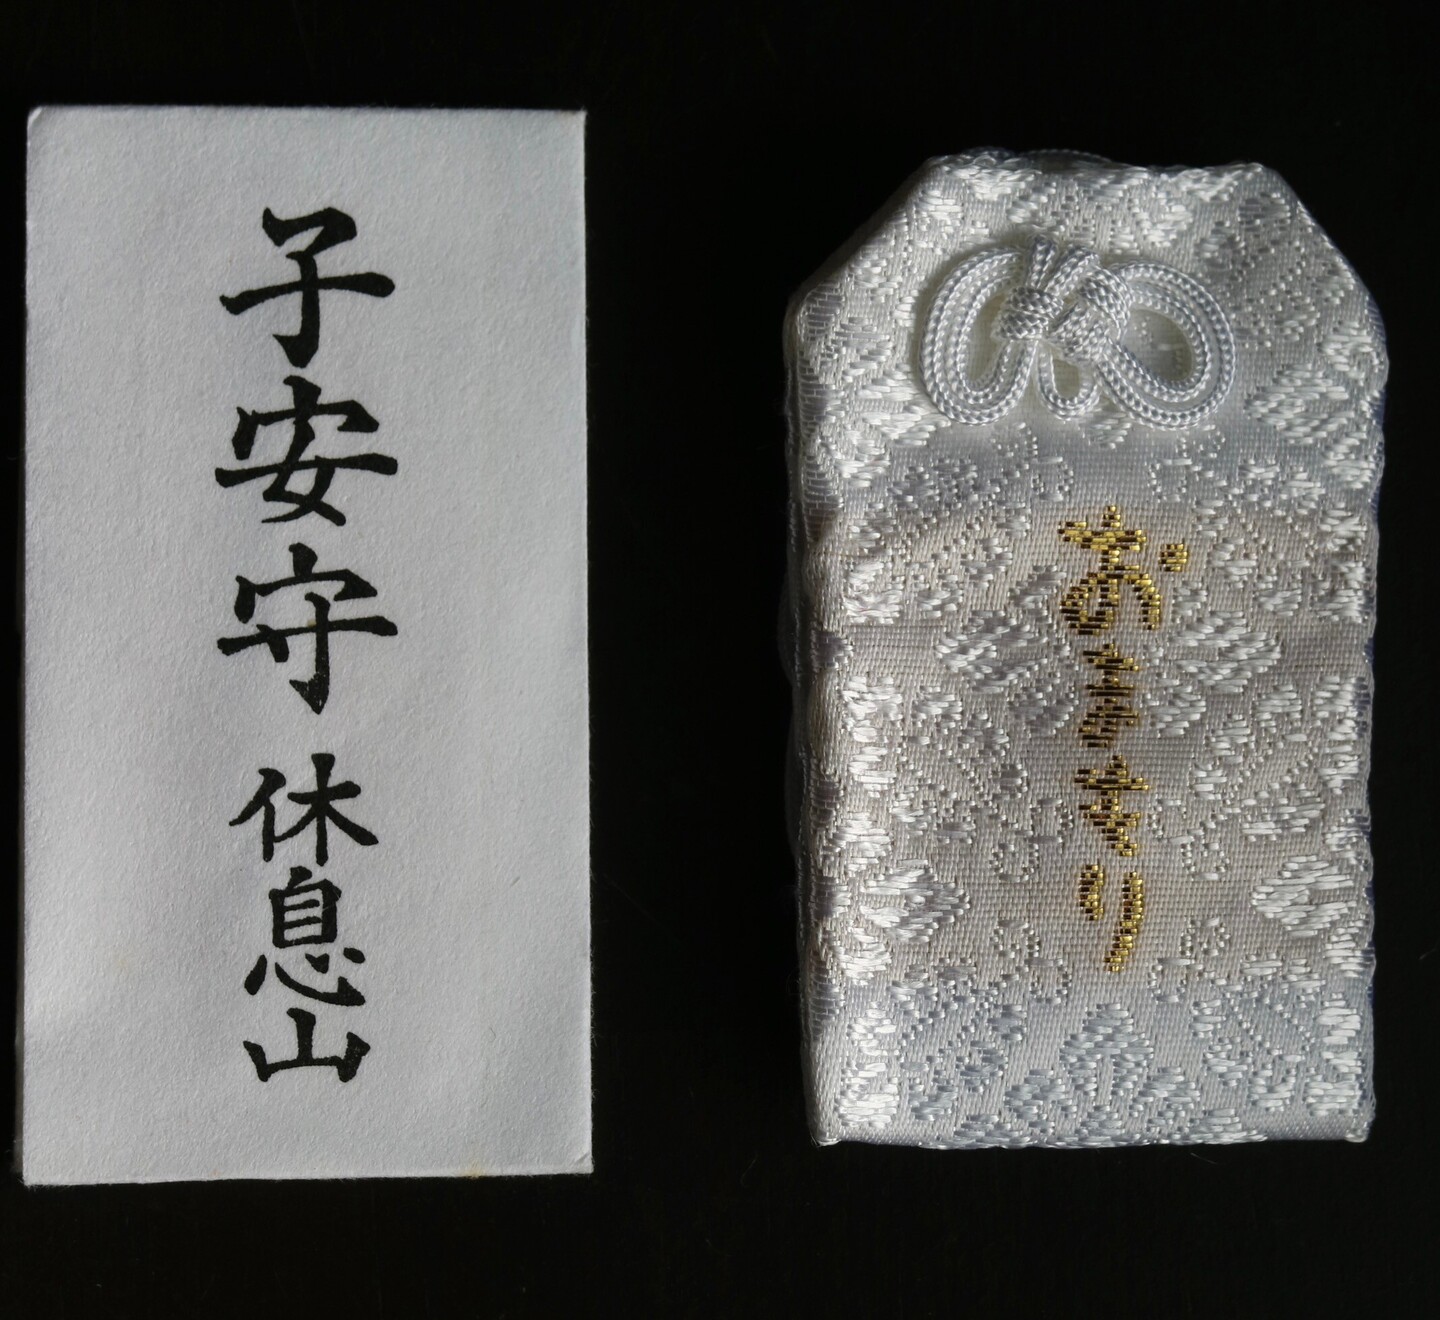 子安守 休息山
おまもり